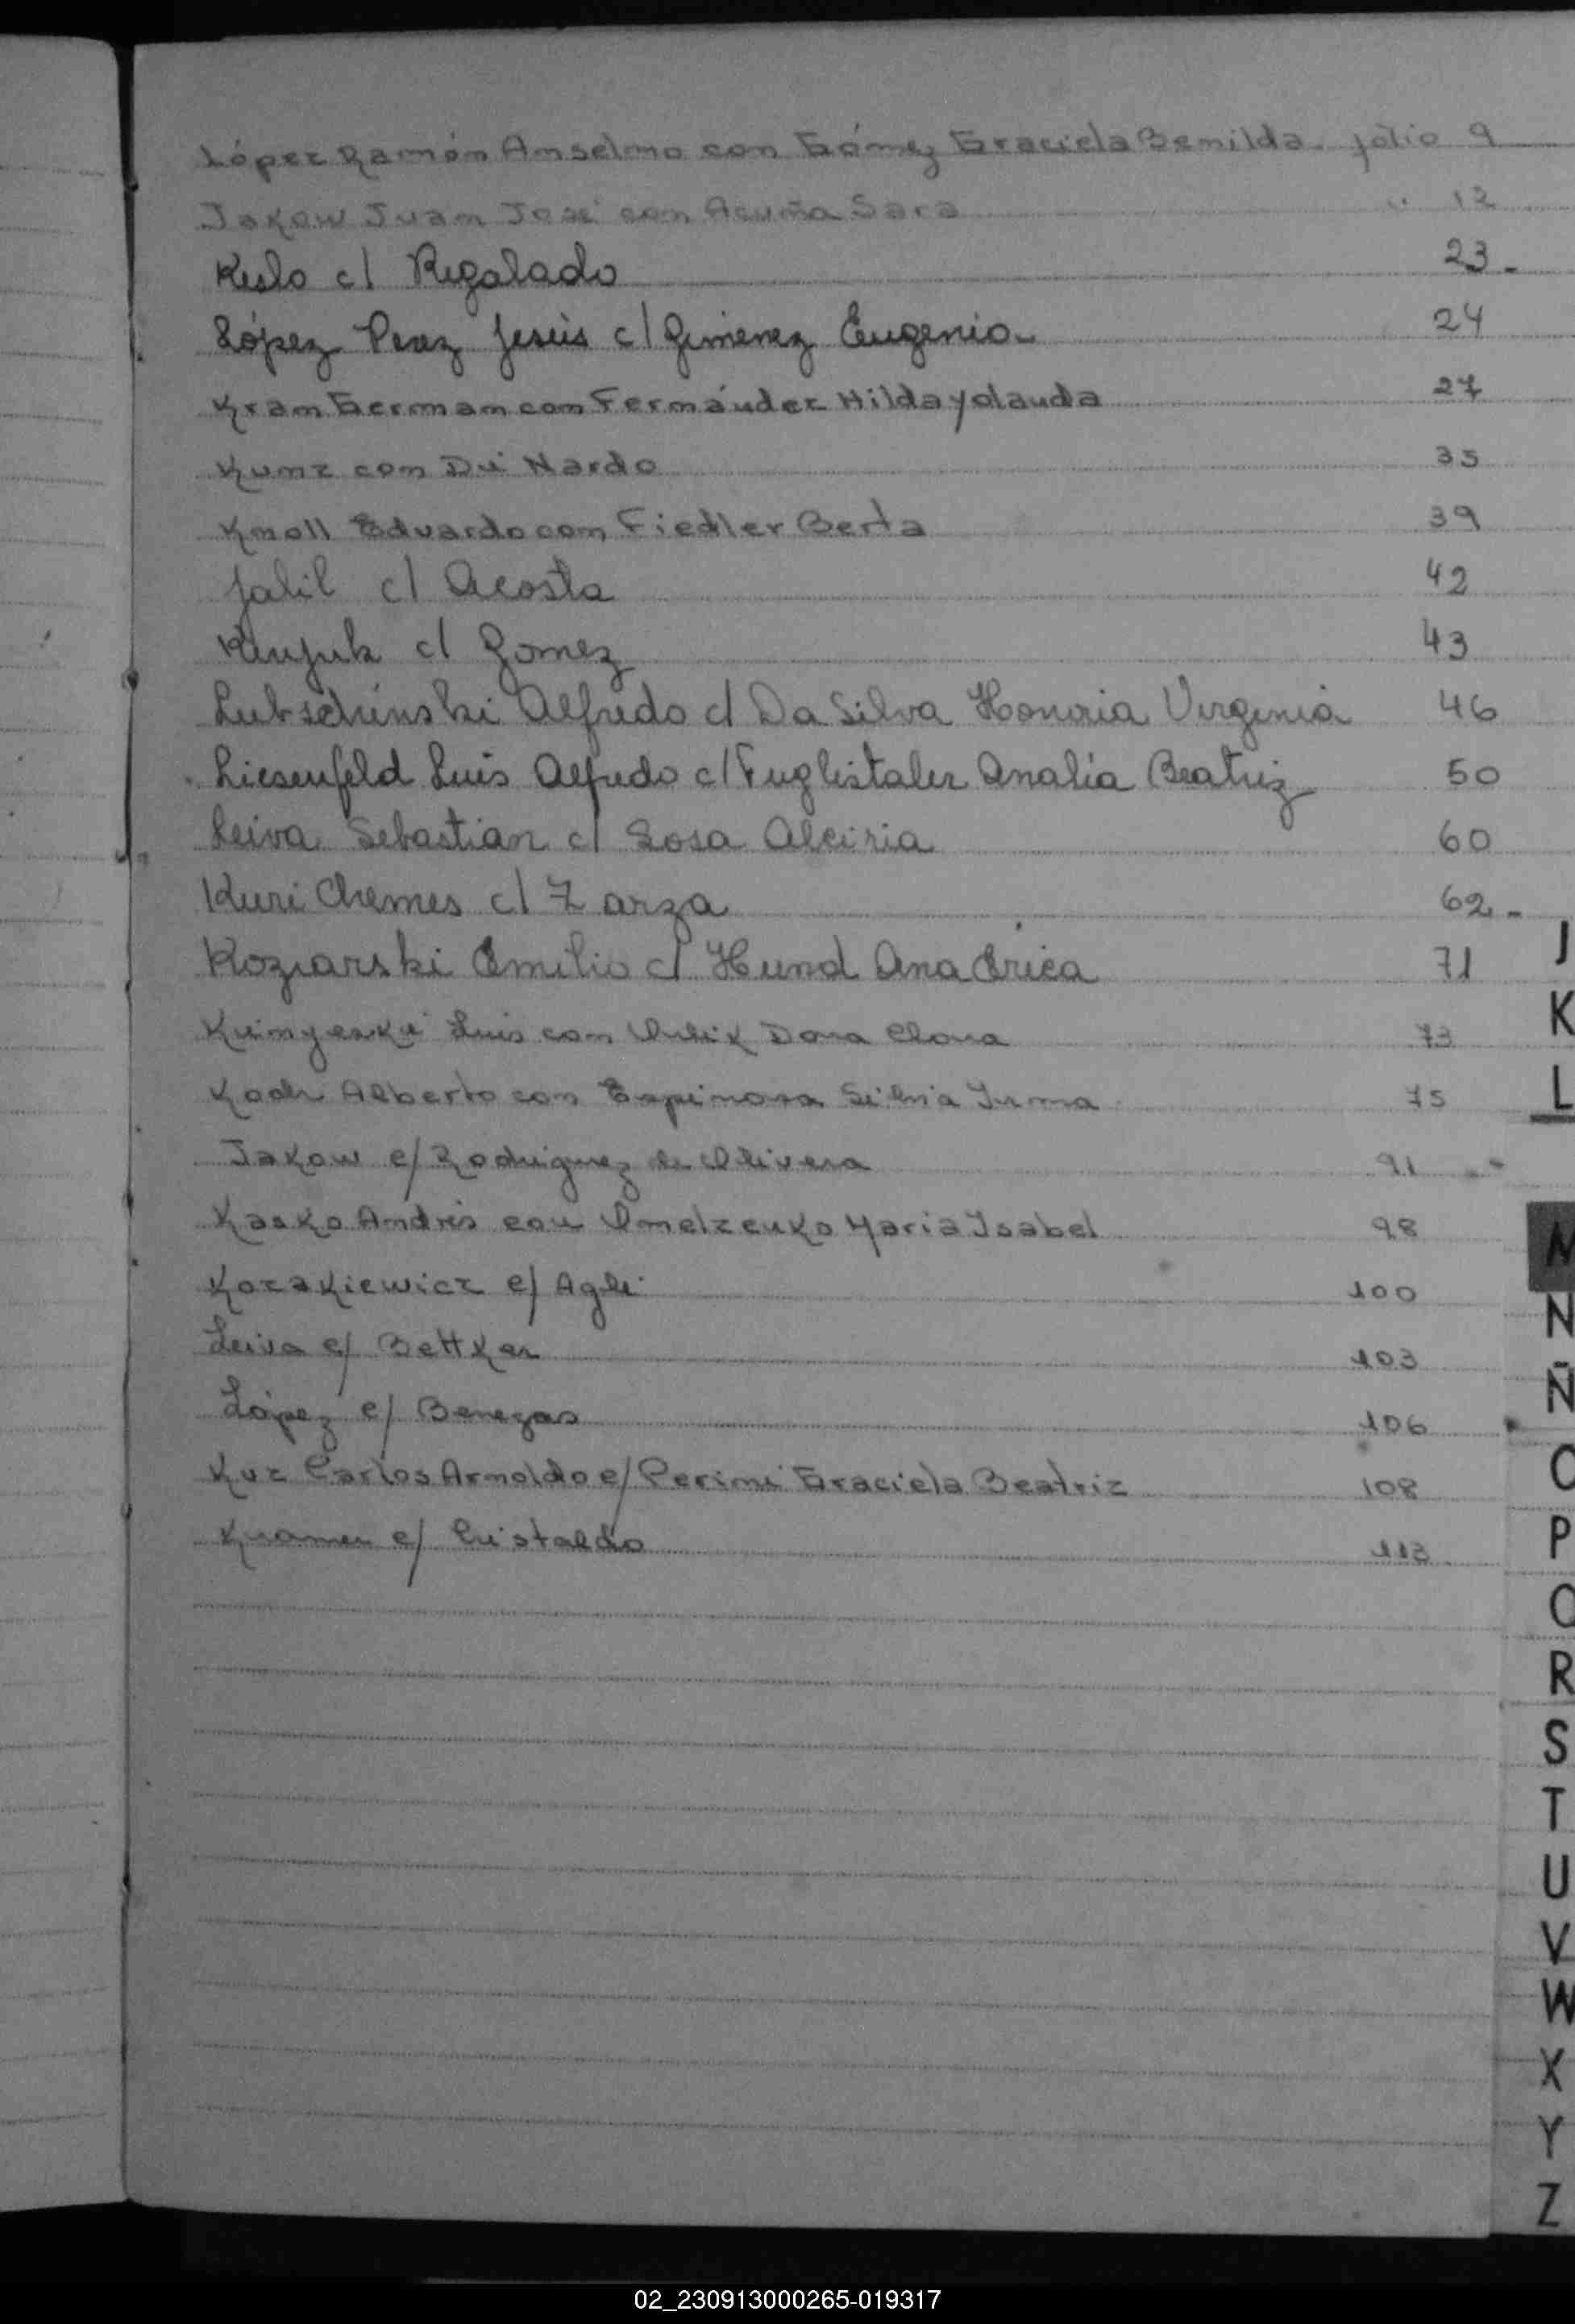 López Ramón Anselmo con Gómez Graciela Bemilda. folio 9
Jakow Juan José con Acuña Sara " 12
Keslo c/ Regalado 23.-
López Perez Jesús c/ Gimenez Eugenia 24
Kram German con Fernández Hilda Yolanda 27
Kunz con Di Nardo 35
Knoll Eduardo con Fiedler Berta 39
Jalil c/ Acosta 42
c/ Gomez 43
Lubschinski Alfredo c/ Da Silva Honoria Virginia 46
Liesenfeld Luis Alfredo c/ Fuglistaler Analía Beatriz 50
Leiva Sebastian c/ Sosa Alciria 60
Kuri Chemes c/ Zarza 62.-
Koziarski Emilio c/ Hund Ana Erica 71
Luis con Dora Clara 73
Koch Alberto con Espinosa Silvia Irma 75
Jakow c/ Rodriguez de Olivera 91
Kasko Andrés con Omelzenko María Isabel 98
Kozakiewicz c/ Agli 100
Leiva c/ Bettker 103
López c/ Benegas 106
Kuz Carlos Arnoldo c/ Perini Graciela Beatriz 108
Kramer c/ Cristaldo 113
J
K
L
M
N
Ñ
O
P
Q
R
S
T
U
V
W
X
Y
Z
02_230913000265-019317